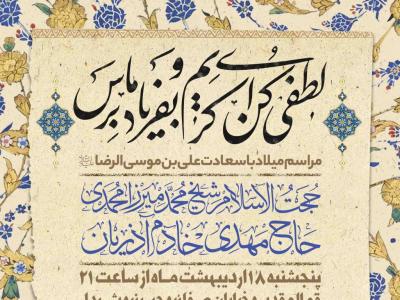 لطفی کن ای کریم و بفریاد ما برس
مراسم میلاد باسعادت علی بن موسی الرضا
حجت الاسلام شیخ محمد میرزامحمدی
حاج مهدی خادم آذریان
پنجشنبه ۱۸ اردیبهشت ماه از ساعت ۲۱